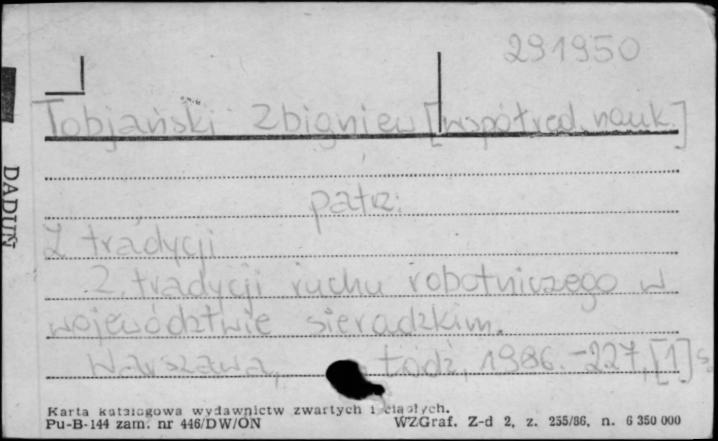 291950
Tobjański Zbigniew [współred. nauk.]
patrz:
Z tradycji
Z tradycji ruchu robotniczego w
województwie sieradzkim.
Warszawa, Łódź, 1986. - 227, [1] s.
Karta katalogowa wydawnictw zwartych i ciągłych.
Pu-B-144 zam. nr 446/DW/ON
WZGraf. Z-d 2, z. 255/86, n. 6 350 000
DADUŃ